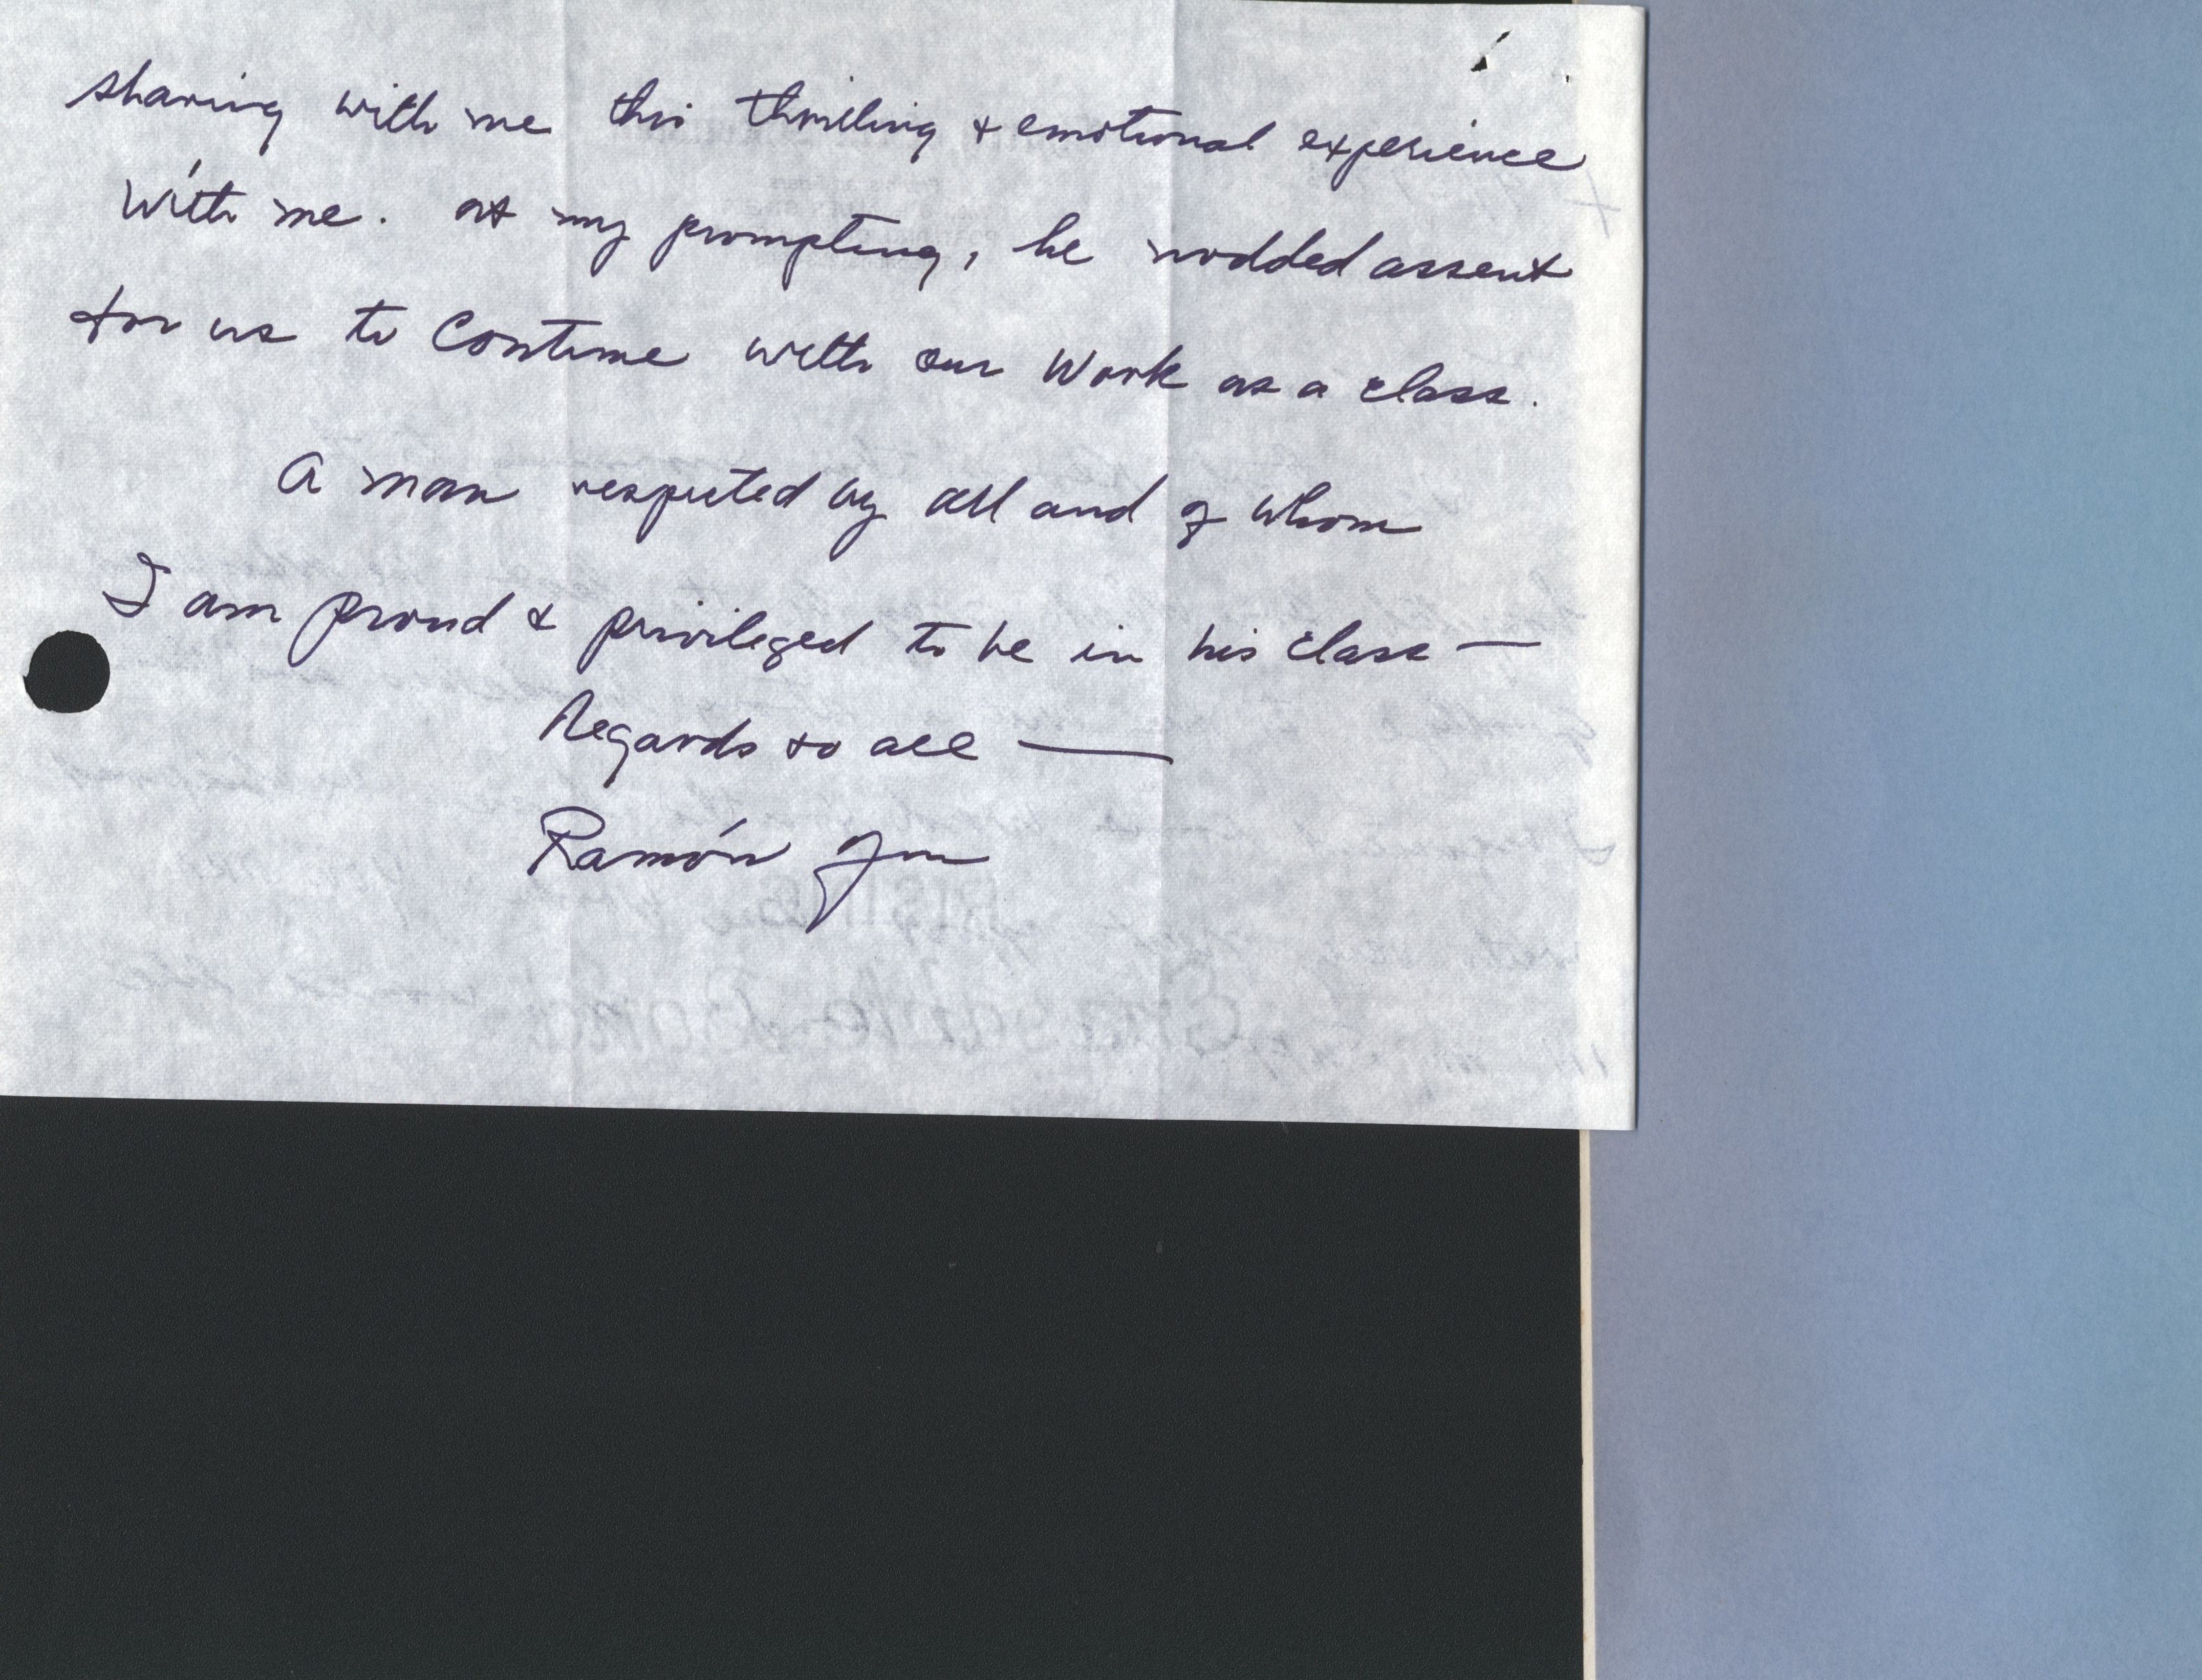 sharing with me this thrilling & emotional experience
with me. at my prompting, he nodded assent
for us to Continue with our Work as a class.
A man respected by all and of whom
I am proud & privileged to be in his class —
Regards to all —
Ramón